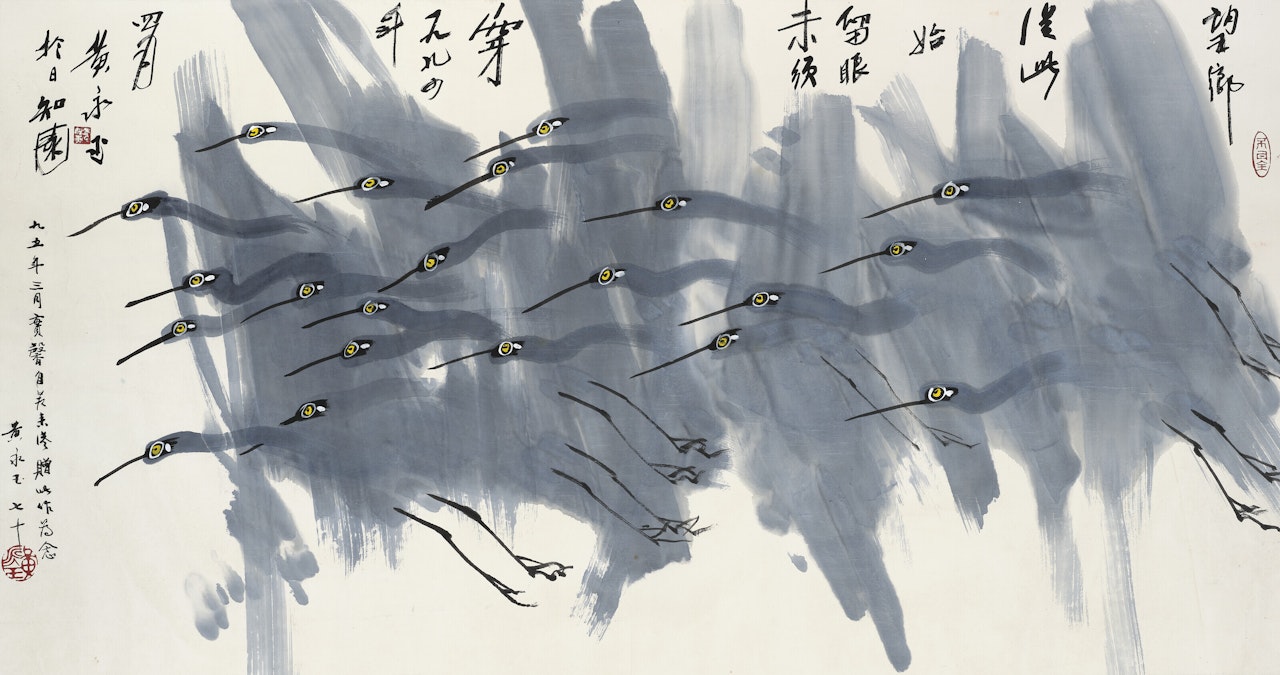 望鄉
從此
始
留眼
未須
穿
一九九四
年
四月
黃永玉
於日知
九五年三月馨自來港贈此作為念
黃永玉七十